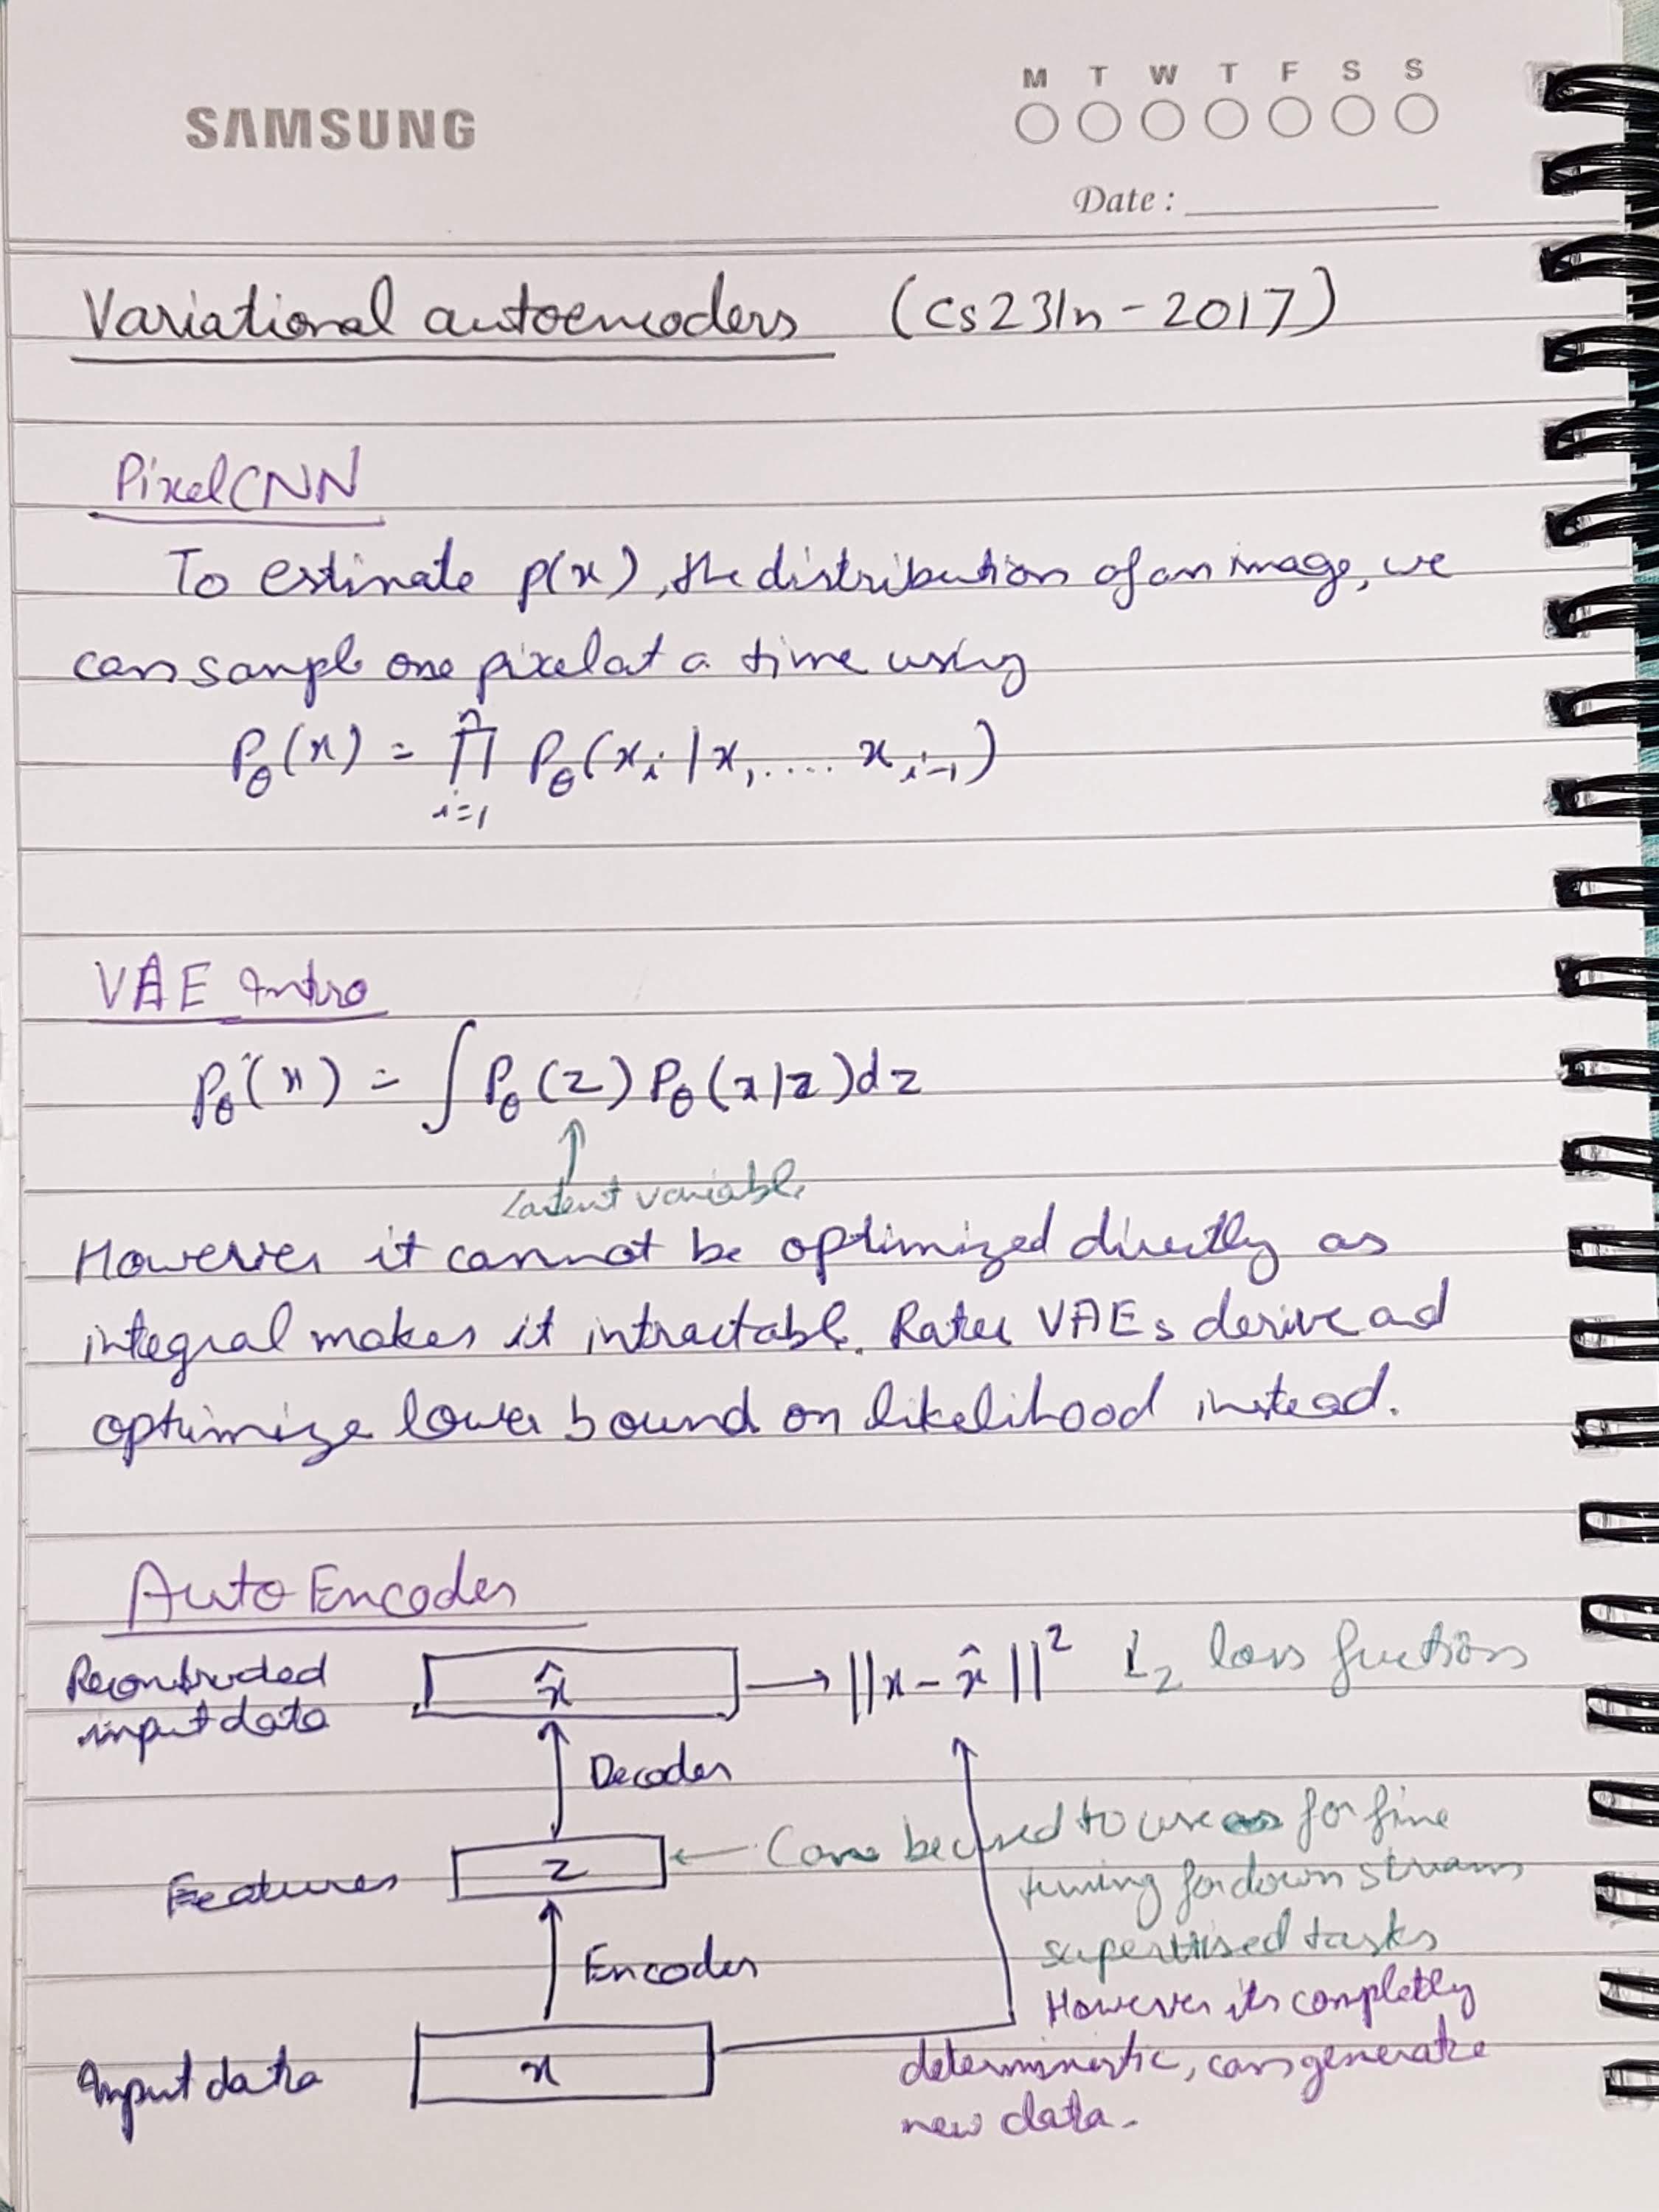 SAMSUNG
M T W T F S S
Date :
Variational autoencoders (cs231n-2017)
PixelCNN
To estimate p(x), the distribution of an image, we
can sample one pixel at a time using
Pθ(x) = ∏ⁿᵢ₌₁ Pθ(xᵢ | x₁ .... xᵢ₋₁)
VAE Intro
Pθ(x) = ∫ Pθ(z) Pθ(x|z) dz
Latent variable
However it cannot be optimized directly as
integral makes it intractable. Rater VAEs derive ad
optimize lower bound on likelihood instead.
Auto Encoder
Reconstruded
input data
x̂
||x - x̂||² L₂ loss fuction
Decoder
Features
z
Can be used to use as for fine
tuning for down stream
supervised tasks
Encoder
However its completly
deterministic, can generate
new data.
Input data
x